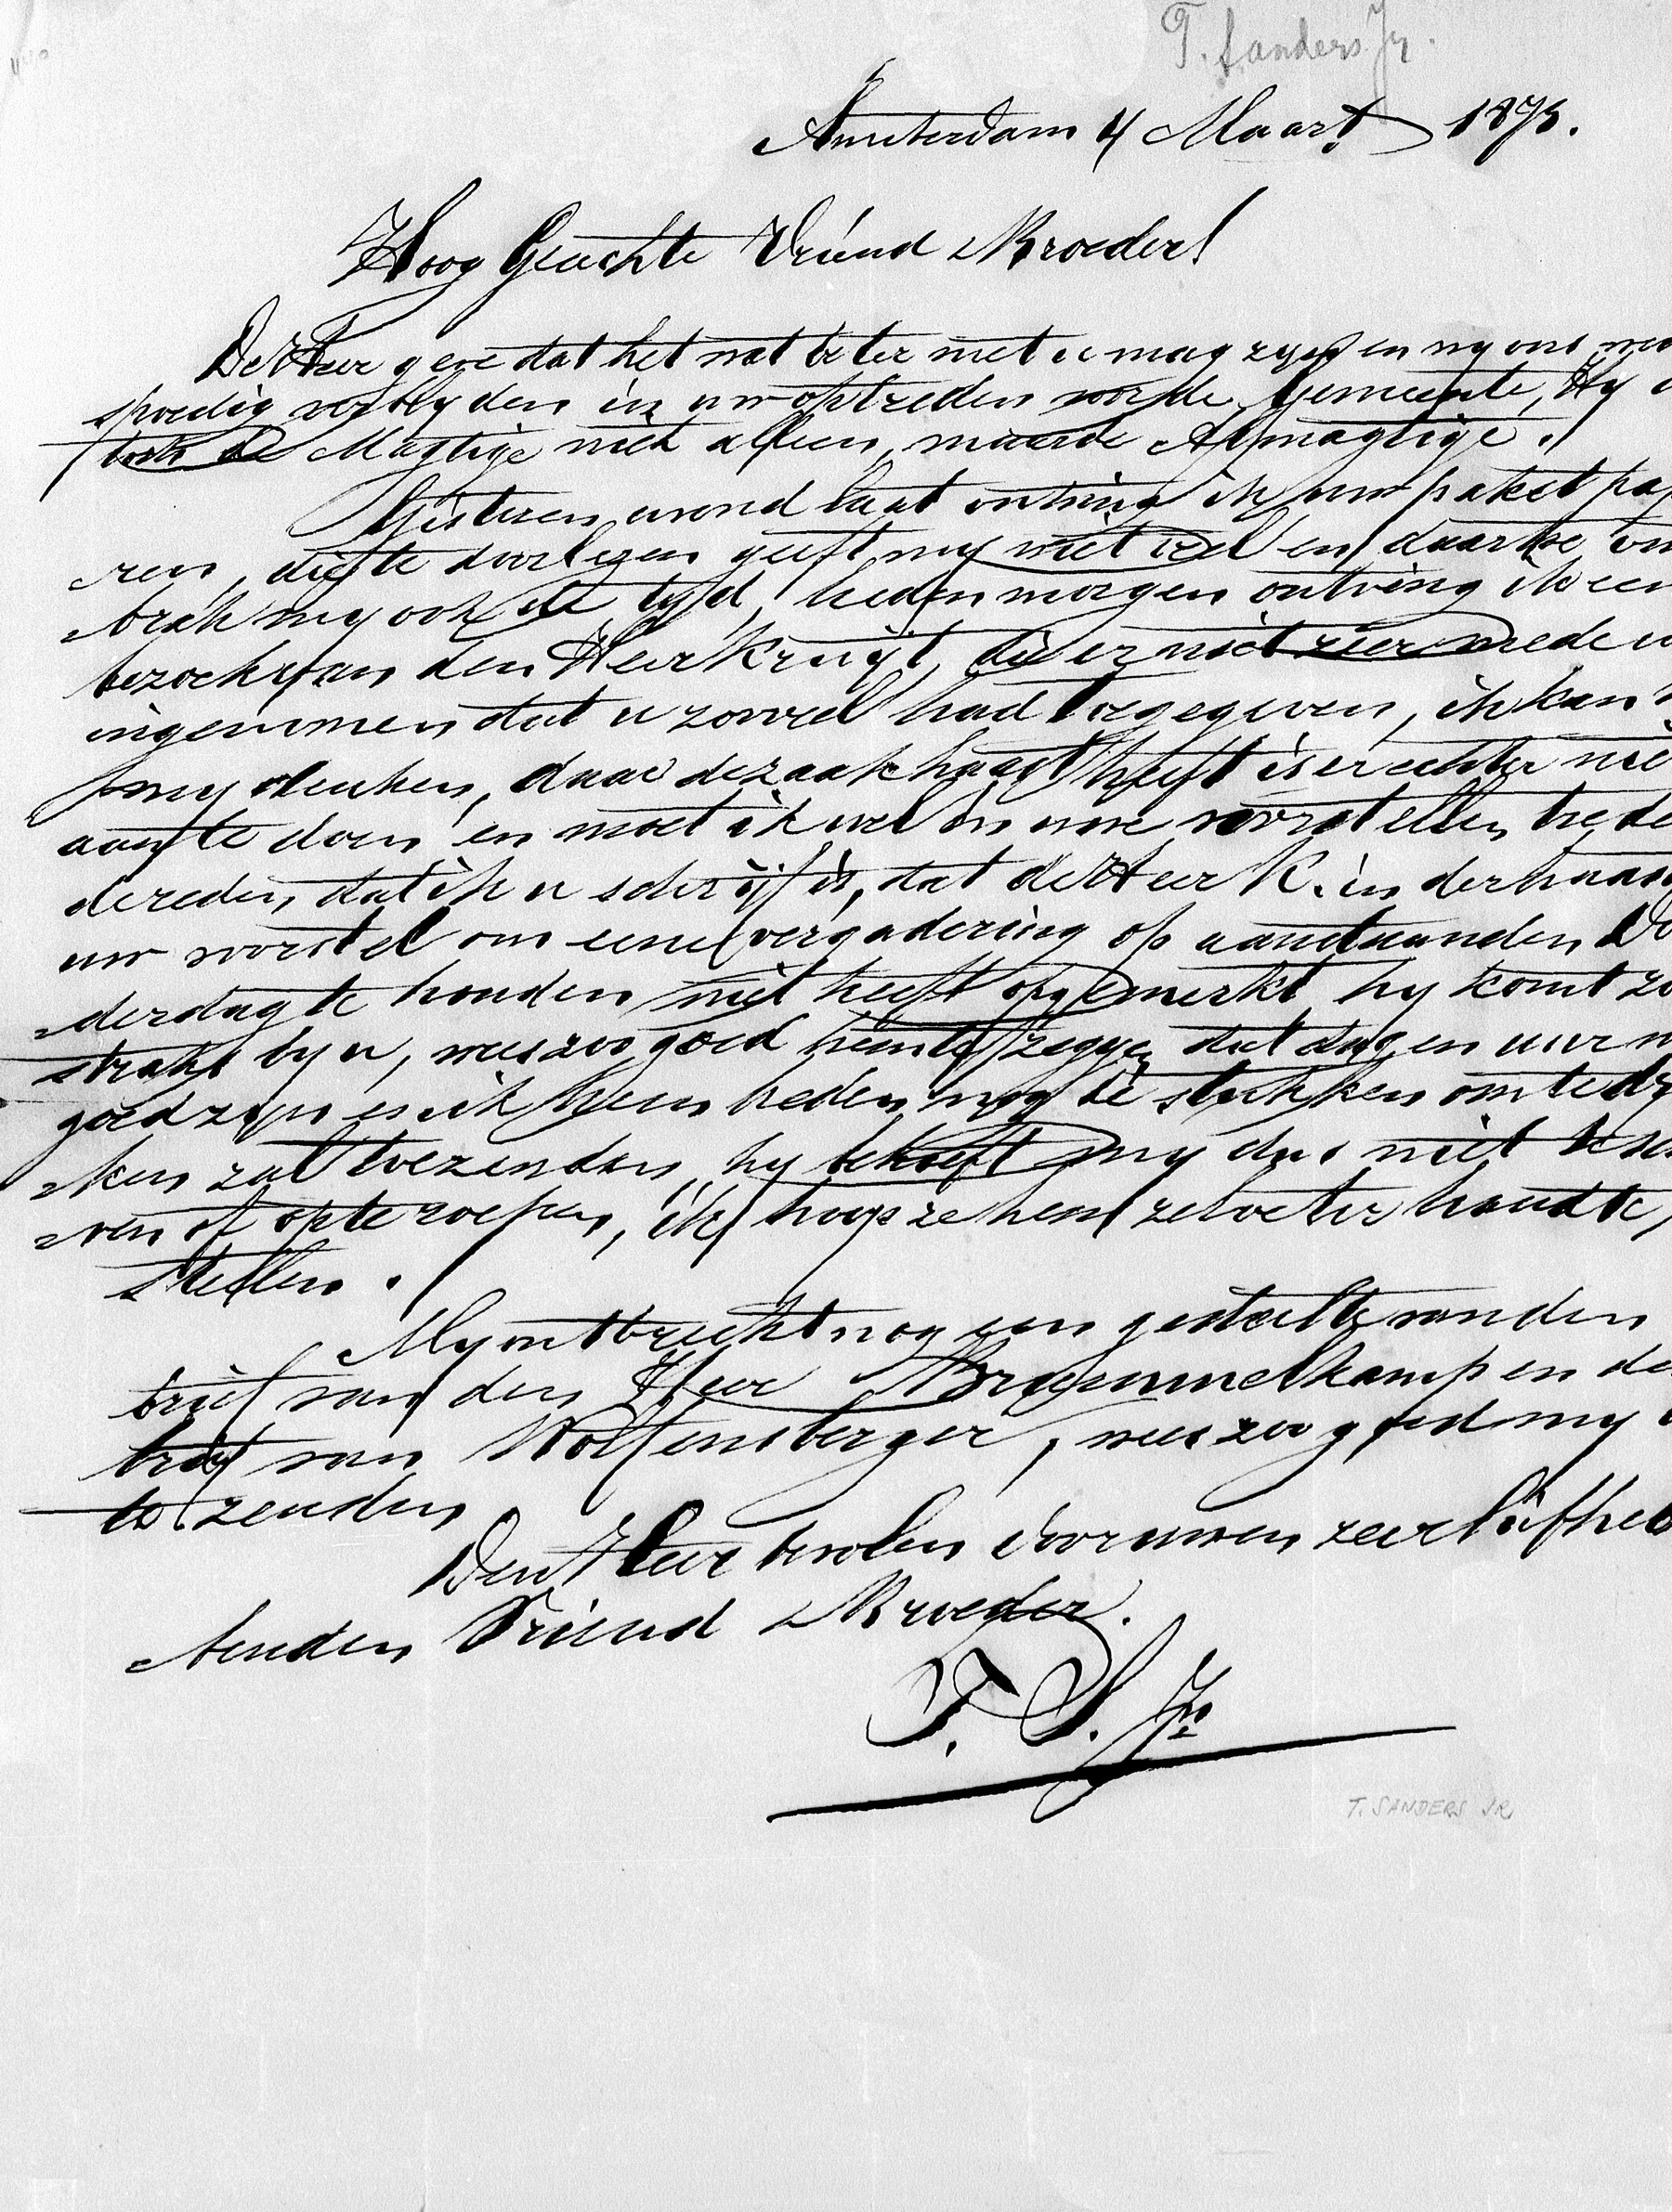 T. Sanders Jr.
Amsterdam 4 Maart 1875.
Hoog Geachte Vriend & Broeder!
De Heer geve dat het wat beter met u mag zijn en wy ons
spoedig verblyden in uw optreden voor de Gemeente, Hy
toch de Magtige niet alleen, maar de Almagtige.
Gisteren avond laat ontving ik uw paket pa
ren, die te doorlezen geeft my niet veel en daartoe on
brak my ook de tyd, heden morgen ontving ik een
bezoek van den Heer Kruijt, die er niet zeer mede
ingenomen dat u zooveel had toegegeven, ik kan
my denken, daar de zaak haast heeft is er echter nie
aan te doen en moet ik wel in uwe voorstellen trede
de reden dat ik u schrijf is, dat de Heer K. in der haas
uw voorstel om eene vergadering op aanstaanden Do
derdag te houden niet heeft opgemerkt hy komt zo
straks by u, wees zoo goed hem te zeggen dat dag en uur
goed zyn en ik hem heden nog de stukken om te dr
ken zal toezenden, hy behoeft my dus niet te sch
ven of op te roepen, ik hoop ze hem zelve ter hand te
stellen.
My ontbreekt nog een gedeelte van den
brief van den Heer Brummelkamp en de
brief van Wolfensberger, wees zoo goed my
te zenden
Den Heer bevolen door uwen zeer liefheb
benden Vriend & Broeder.
T. S. Jr
T. SANDERS JR